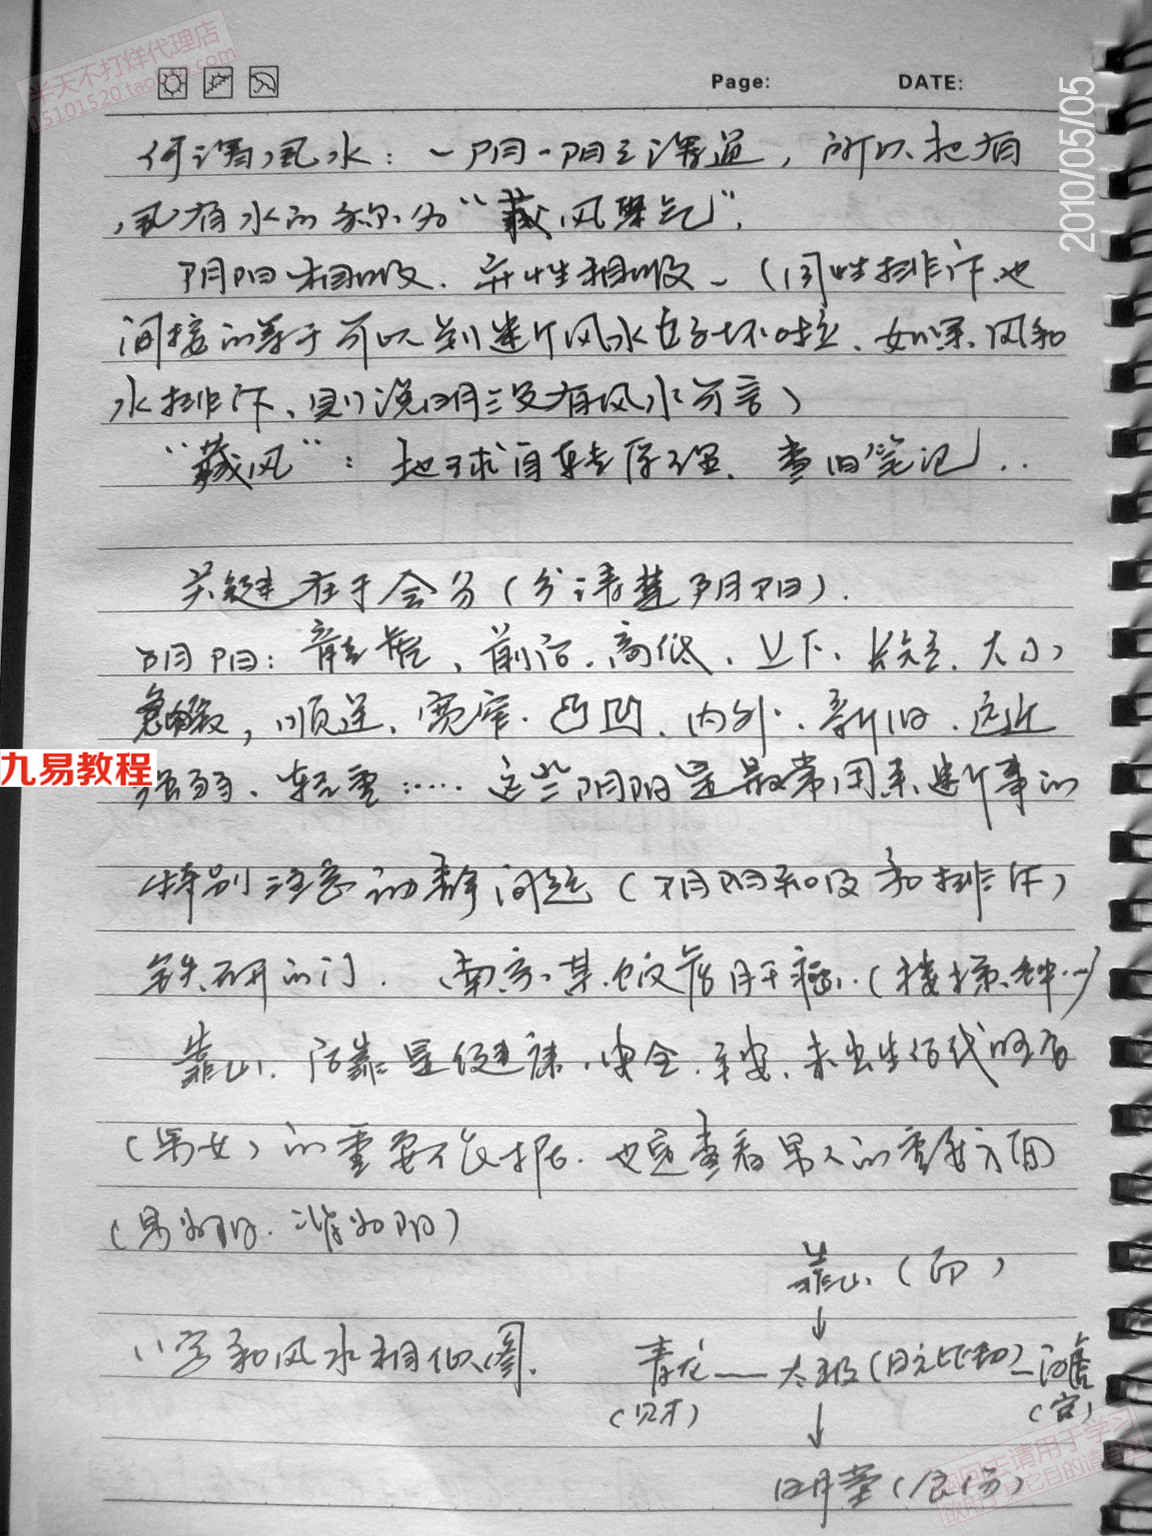 半天不打烊代理店
15101520.taobao.com
Page: DATE:
2010/05/05
何谓风水：一阴一阳之谓道，所以把有
风有水的称为“藏风聚气”.
阴阳相吸.异性相吸.（同性排斥.也
间接的等于可以判断个风水好坏啦.如果风和
水排斥、则说明没有风水可言）
“藏风”：地球自转原理.查旧笔记...
关键在于会分（分清楚阴阳）.
阴阳：龙虎、前后.高低.上下.长短.大小
急缓，顺逆、宽窄.凸凹.内外.新旧.远近
九易教程
强弱、轻重：……这些阴阳是最常用来断事的
特别注意的事 问题（阴阳和吸和排斥）
铁 的门. 南京.某饭店 （楼梯 ）
靠山. 后靠是健康.安全.平安.未出生后代
（男女）的重要 .也是查看男人的重要方面
（男为阳. 为阳）
靠山（印）
↓
八字和风水相似图.
青龙——太极（日元比劫）—白虎
（财） （官）
↓
明堂（食伤）
请用于学习